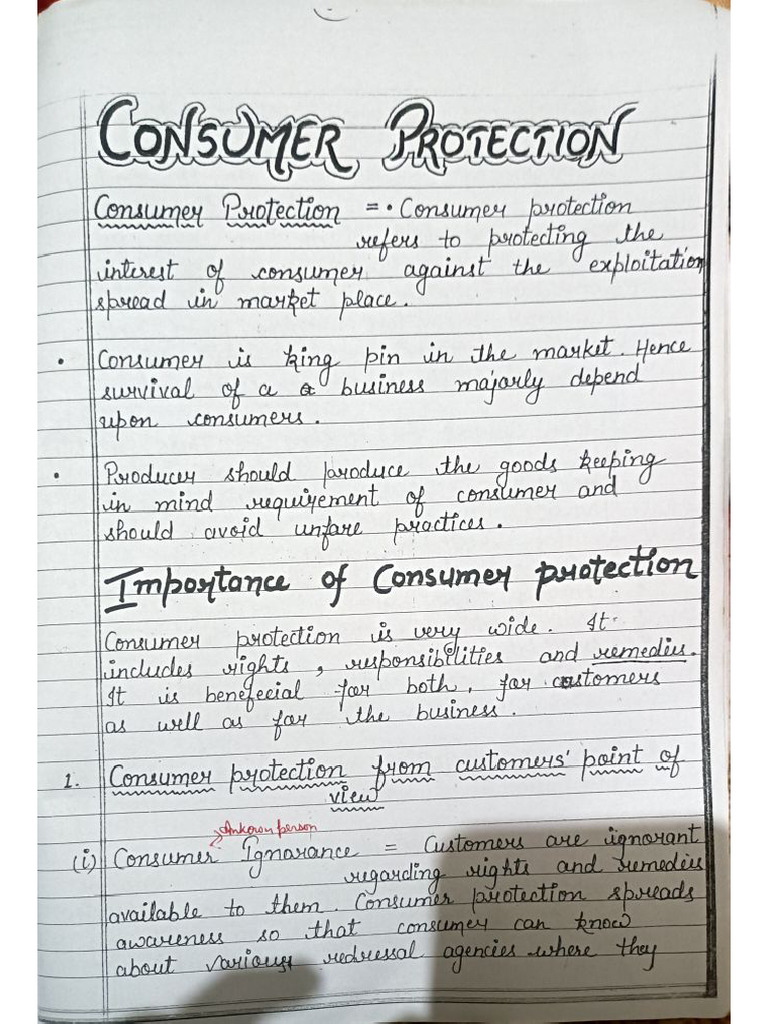 CONSUMER PROTECTION
Consumer Protection = • Consumer protection
refers to protecting the
interest of consumer against the exploitation
spread in market place.
• Consumer is king pin in the market. Hence
survival of a a business majarly depend
upon consumers.
• Producer should produce the goods keeping
in mind requirement of consumer and
should avoid unfare practices.
Importance of Consumer protection
Consumer protection is very wide. It
includes rights, responsibilities and remedies.
It is benefecial for both, for customers
as well as for the business.
1. Consumer protection from customers' point of
view
person
(i) Consumer Ignorance = Customers are ignorant
regarding rights and remedies
available to them. Consumer protection spreads
awareness so that consumer can know
about various redressal agencies where they